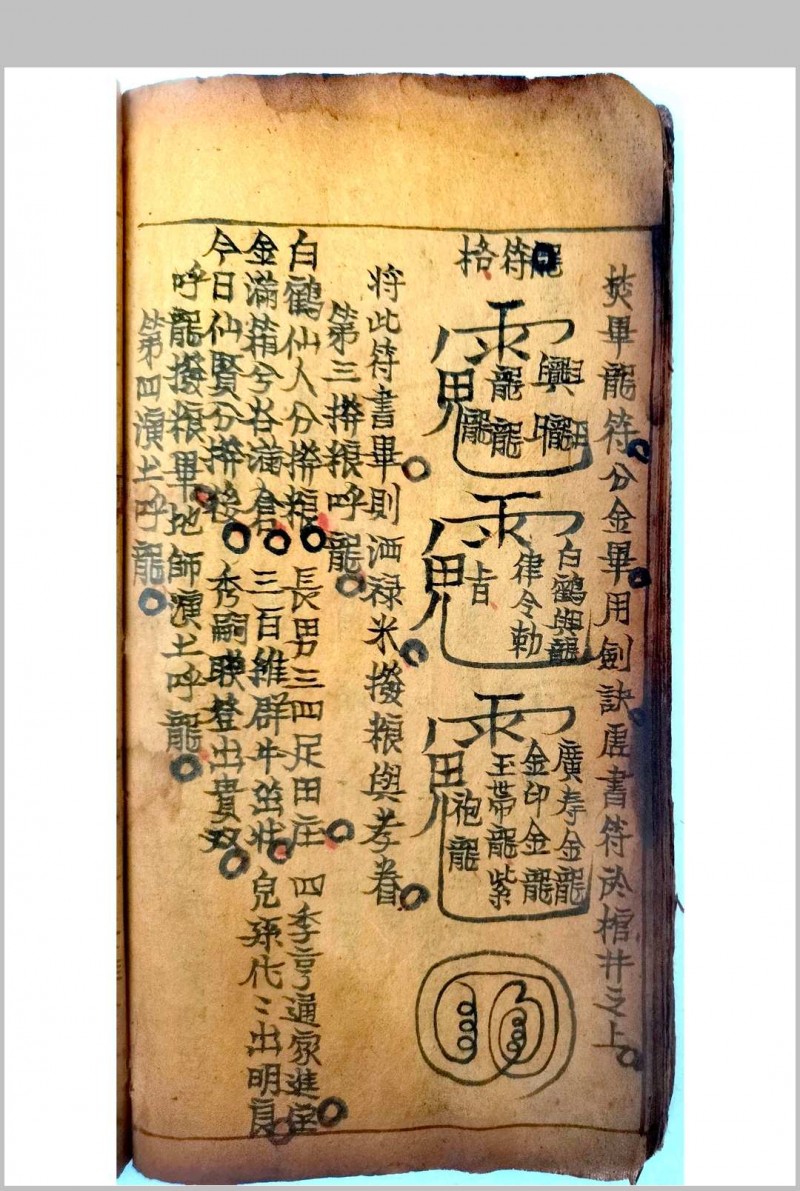 焚畢龍符分金畢用劍訣虛書符於棺井之上
龍符格
䨺 興龍 龍龍 職
䨺 白鶴與龍 律令勅 上旨
䨺 廣寿金龍 金印金龍 玉帶龍紫 袍龍
将此符書畢則洒禄米撥粮與孝眷
第三撥粮呼龍
白鶴仙人分撥粮 長男三四足田庄 四季亨通家進宝
金滿箱兮谷滿倉 三百維群牛茁壯 兒孫代〻出明良
今日仙賢分撥後 秀嗣聯登出貴双
呼龍撥粮畢地師演土呼龍
第四演土呼龍